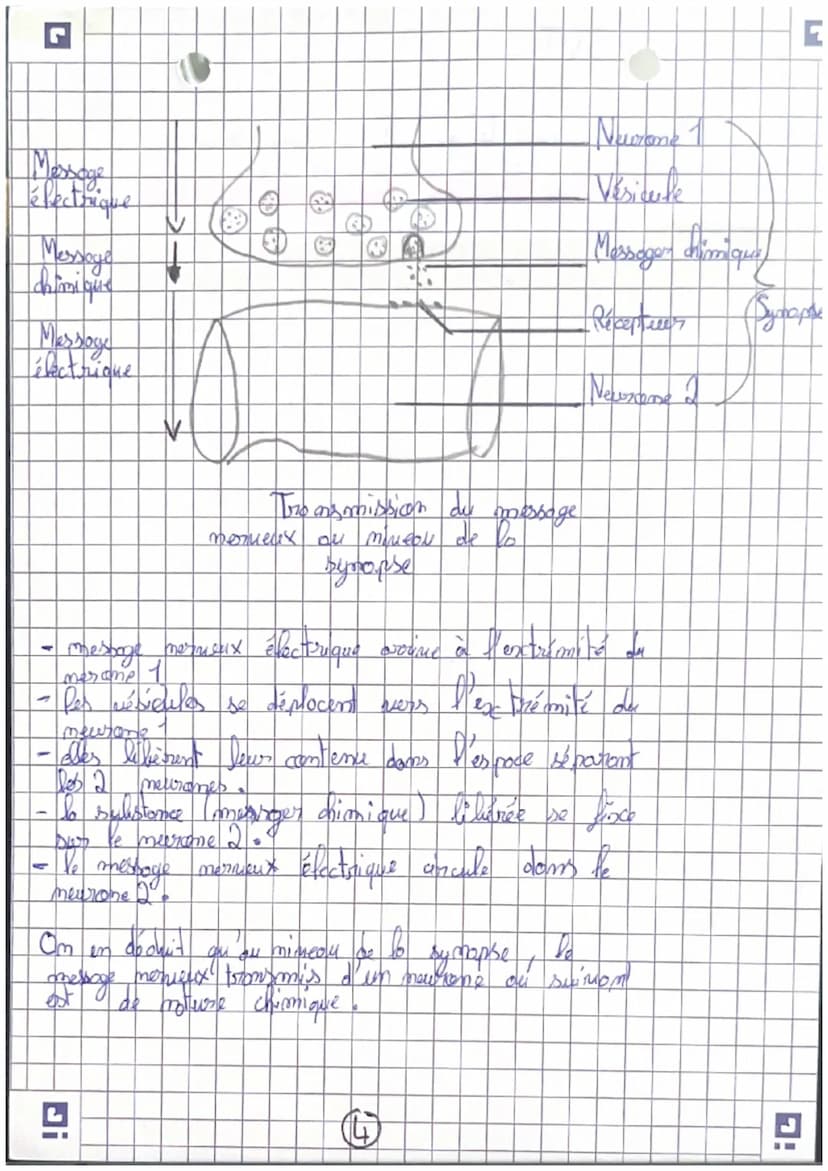 Neurone 1
Message
électrique
Vésicule
Message
chimique
Messager chimique
Synapse
Récepteur
Message
électrique
Neurone 2
Transmission du message
nerveux au niveau de la
synapse
- message nerveux électrique arrive à l'extrémité du
nerone 1
- les vésicules se déplacent vers l'extrémité du
neurone 1
- elles libèrent leur contenu dans l'espace séparant
les 2 neurones.
- la substance (messager chimique) libérée se fixe
sur le neurone 2.
- le message nerveux électrique circule dans le
neurone 2.
On en déduit qu'au niveau de la synapse, le
message nerveux transmis d'un neurone au suivant
est de nature chimique.
4